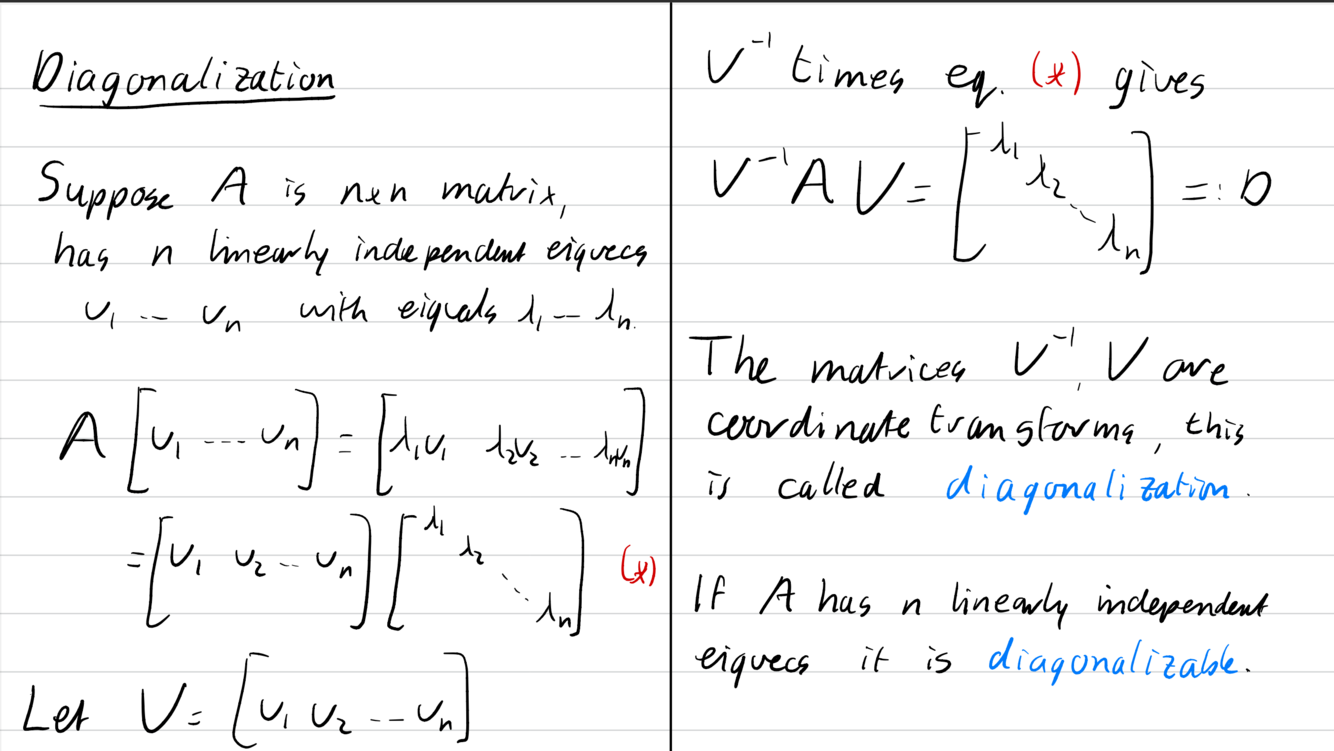 Diagonalization
Suppose A is n×n matrix,
has n linearly independent eigvecs
v₁ -- vₙ with eigvals λ₁ -- λₙ.
A [v₁ ---- vₙ] = [λ₁v₁ λ₂v₂ ... λₙvₙ]
= [v₁ v₂ -- vₙ] [λ₁ λ₂ ⋱ λₙ] (*)
Let V = [v₁ v₂ --- vₙ]
V⁻¹ times eq. (*) gives
V⁻¹AV = [λ₁ λ₂ ⋱ λₙ] =: D
The matrices V⁻¹, V are
coordinate transforms, this
is called diagonalization.
If A has n linearly independent
eigvecs it is diagonalizable.